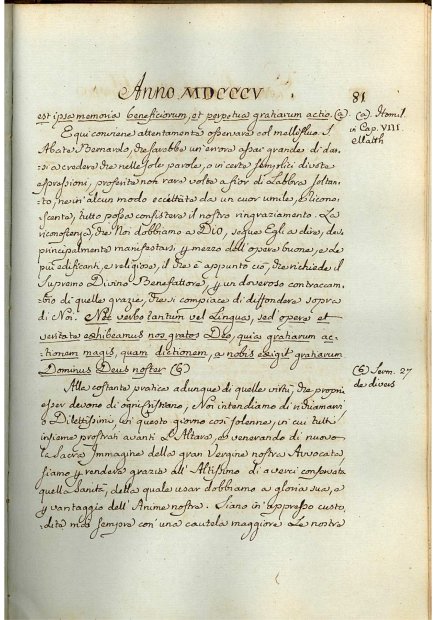 Anno MDCCCV
81
est ipsa memoria beneficiorum, et perpetua gratiarum actio. (a)
(a) Homil.
in Cap. VIII.
Matth
E qui conviene attentamente osservare col mellifluo S.
Abate Bernardo, che sarebbe un'errore assai grande di dar-
si a credere che nelle sole parole, o in certe semplici divote
espressioni, proferite non rare volte a fior di Labbra soltan-
to, ne in alcun modo eccitate da un cuor umile, e riconos-
scente, tutto possa consistere il nostro ringraziamento. La
riconoscenza, che Noi dobbiamo a DIO, segue Egli a dire, de
principalmente manifestarsi p mezzo dell'opere buone, e de
più edificanti, e religiose, il che è appunto ciò, che richiede il
Supremo Divino Benefattore, p un doveroso contraccam-
bio di quelle grazie, che si compiace di diffondere sopra
di Noi. Nec verbo tantum vel Lingua, sed opere et
veritate exhibeamus nos gratos Deo, quia gratiarum ac-
tionem magis, quam dictionem, a nobis exigit gratiarum
Dominus Deus noster (b)
(b) Serm. 27
de divers
Alla costante pratica adunque di quelle virtù, che propri
esser devono di ogni Cristiano, Noi intendiamo di richiamarvi
o Dilettissimi, in questo giorno così solenne, in cui tutti
insieme prostrati avanti L'Altare, e venerando di nuovo
la Sacra Immagine della gran Vergine nostra Avvocata,
siamo p rendere grazie all'Altissimo di averci conservata
quella Sanità, della quale usar dobbiamo a gloria sua, e
p vantaggio dell'Anime nostre. Siano in appresso custo-
dite mai sempre con una cautela maggiore Le nostre